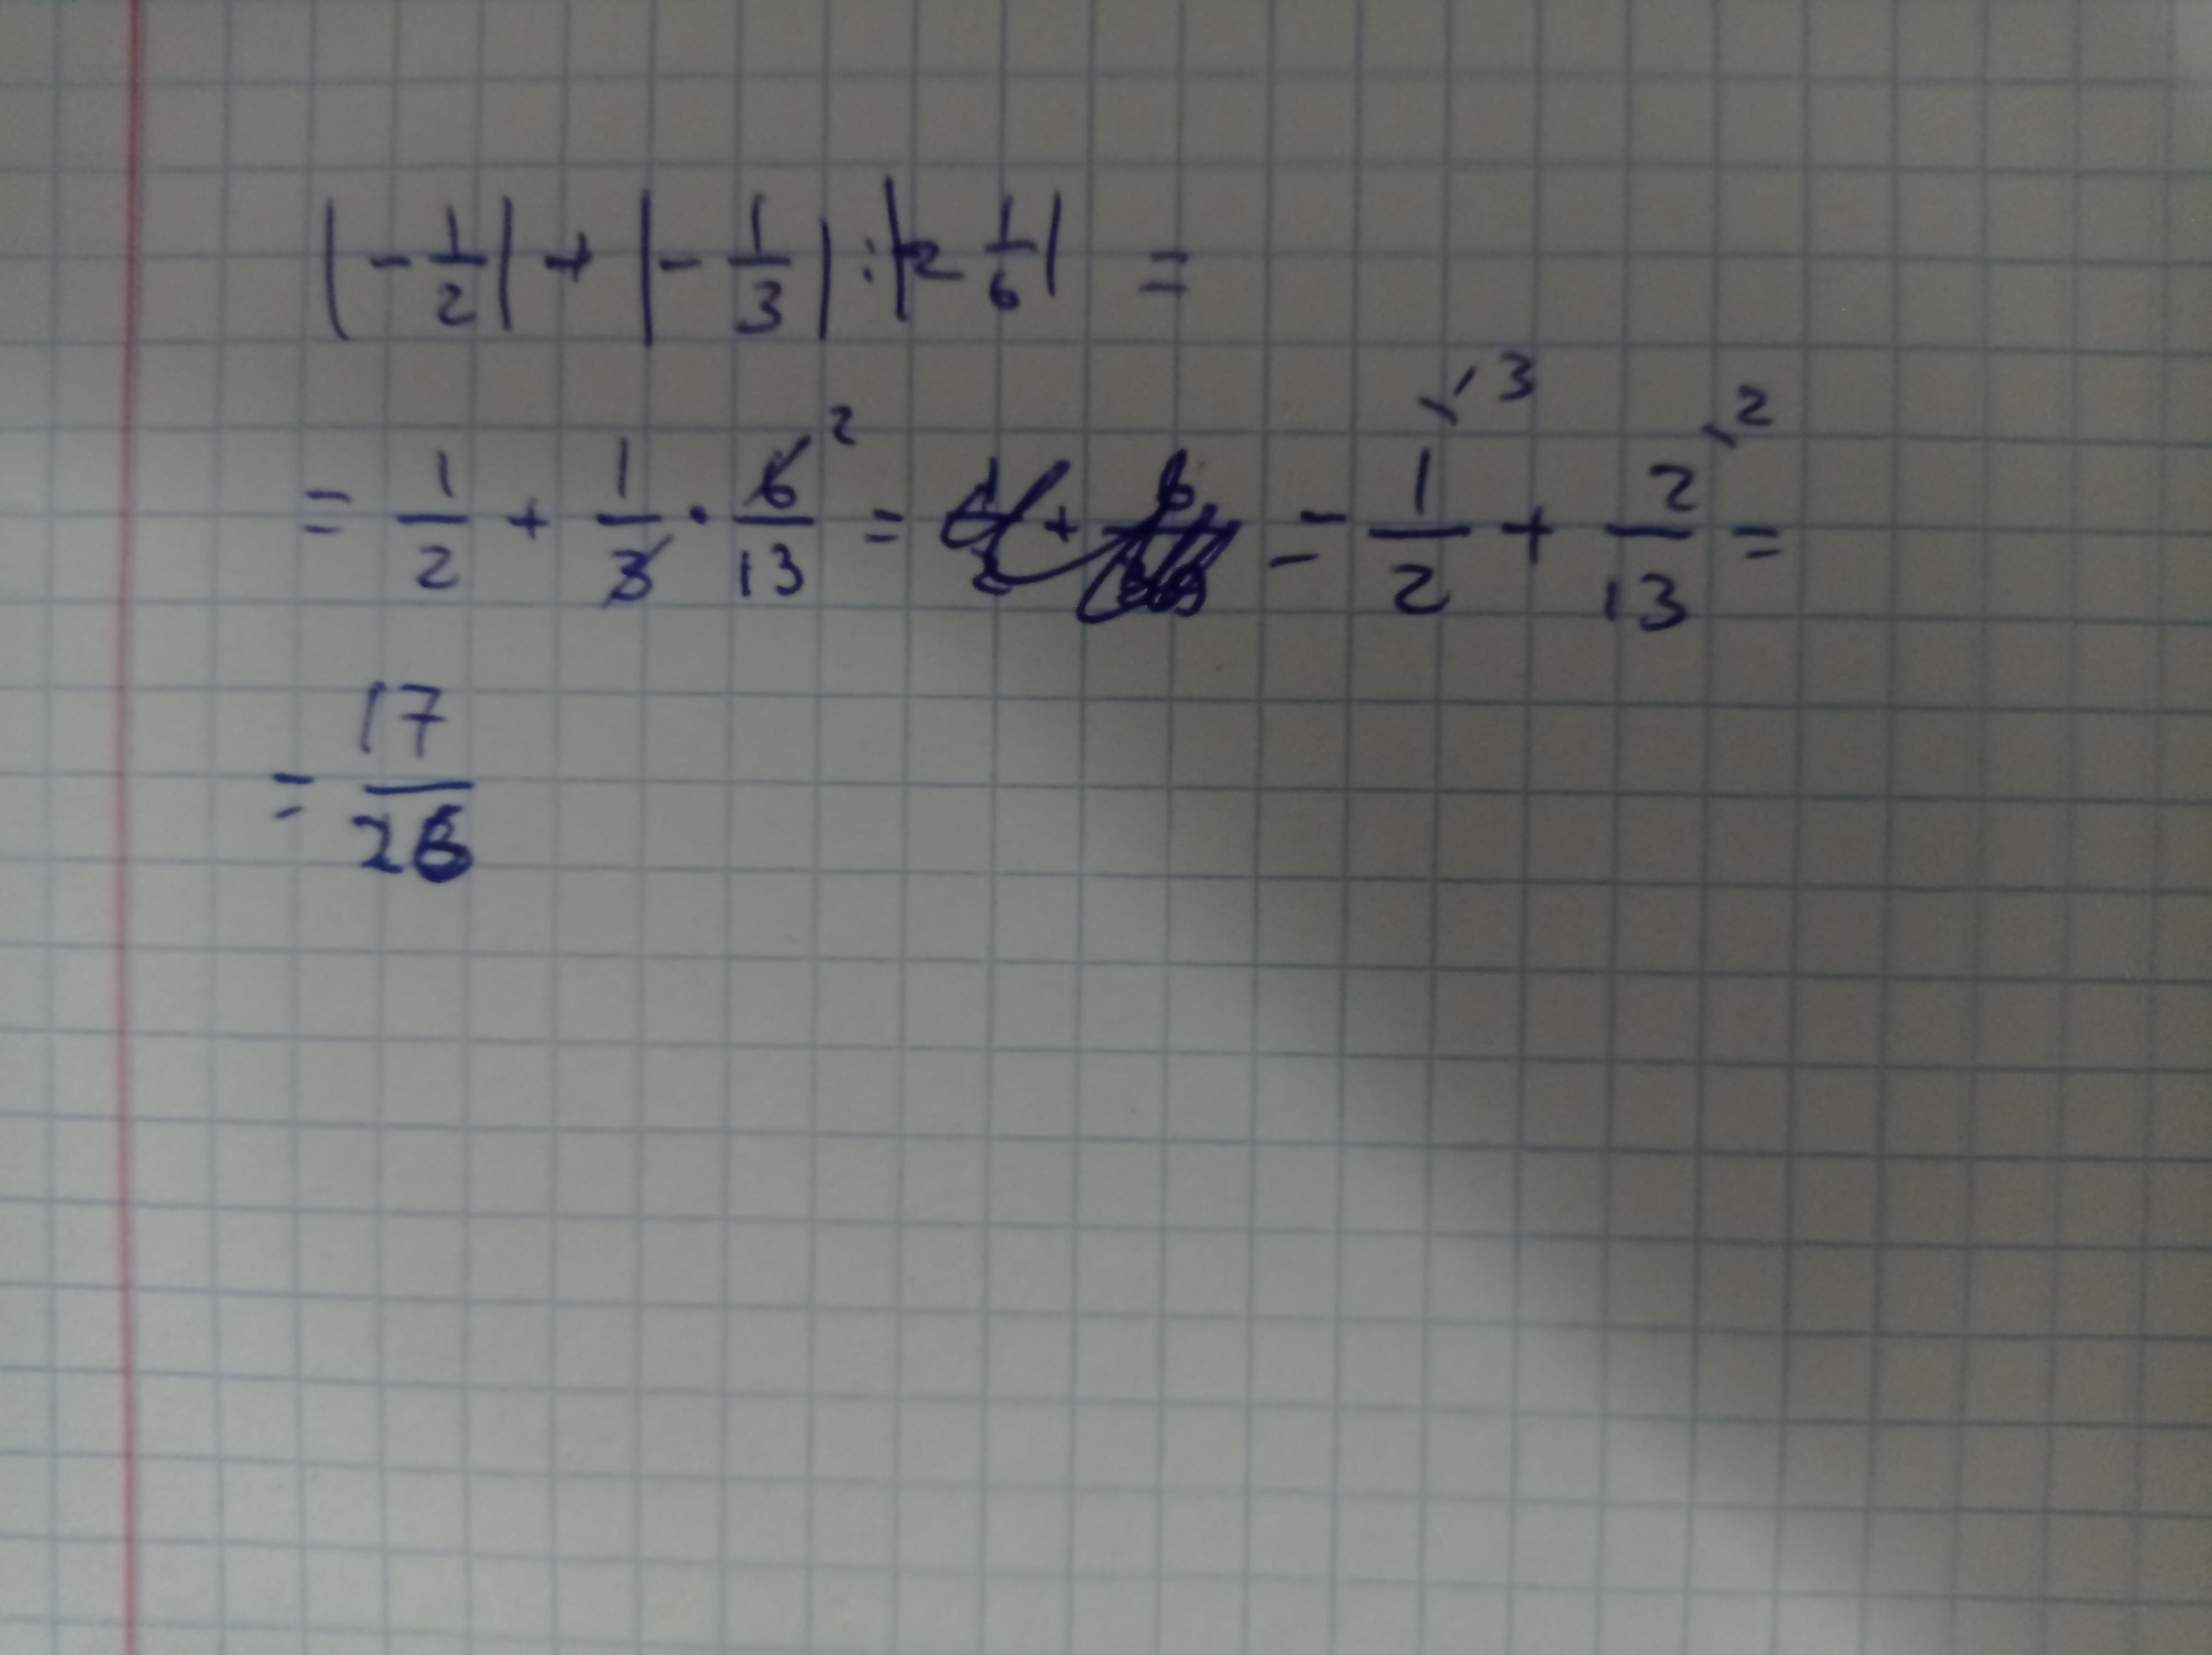 |-1/2| + |-1/3| : |-2 1/6| =
= 1/2 + 1/3 · 6/13 ² = = 1/2 ^13 + 2/13 ^2 =
= 17/26